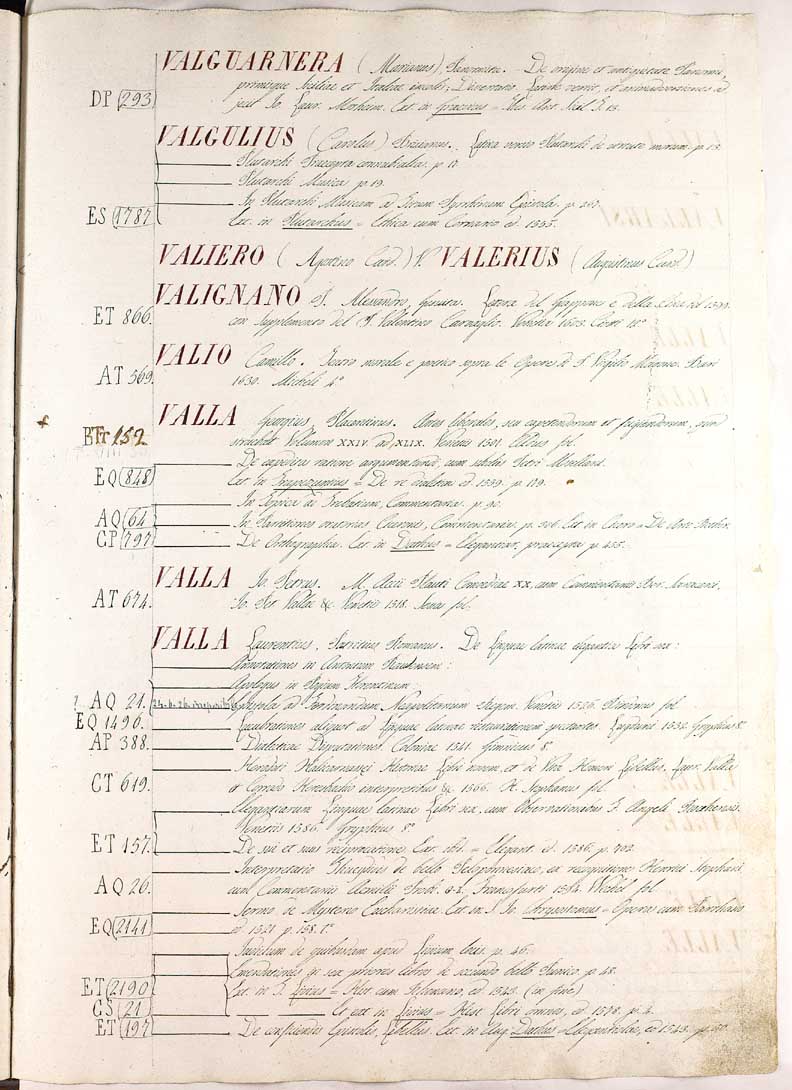 VALGUARNERA (Marianus) Panormita. De origine et antiquitate Panormi,
primisque Siciliae et Italiae incolis; Dissertatio. Latine vertit, et animadversiones ad
DP 293 jecit Jo. Laur. Mosheim. Ext. in Graevius = Thes. Ant. Sicil. T. 13.
VALGULIUS (Carolus) Brixianus. Latina versio Plutarchi de virtute morum. p. 13.
Plutarchi Praecepta connubialia. p. 17.
Plutarchi Musica. p. 19.
In Plutarchi Musicam ad Titum Pyrrhinum Epistola. p. 247.
ES 1787 Ext. in Plutarchus = Ethica cum Cornario ed. 1555.
VALIERO (Agostino Card.) V. VALERIUS (Augustinus Card.)
VALIGNANO P. Alessandro, Gesuita. Lettera del Giappone e della Cina del 1599.
ET 866. con Supplemento del P. Valentino Carvaglio. Venetia 1603. Ciotti 12°
VALIO Camillo. Tesoro morale e poetico sopra le Opere di P. Virgilio Marone. Bari
AT 569. 1630. Micheli 4°
VALLA Georgius, Placentinus.
BTr 152 Volumen XXIV ad XLIX. Venetiis 1501. Aldus fol.
De expedita ratione argumentandi, cum scholiis Petri
EQ 848 Ext. in Trapezuntius = De re dialectica ed. 1559. p. 119.
In Topica ad Trebatium, Commentarius. p. 90.
AQ 64 In Partitiones oratorias Ciceronis, Commentarius. p. 306. Ext. in Cicero = De Arte Rhetor.
CP 797 De Orthographia. Ext. in Dathus = Elegantiar. praecepta p. 455.
VALLA Jo. Petrus. M. Accii Plauti Comoediae XX, cum Commentariis Bern. Saraceni,
AT 674. Jo. Pet. Vallae &c. Venetiis 1518. fol.
VALLA Laurentius, Patritius Romanus. De linguae latinae elegantia Libri sex:
Annotationes in Antonium Raudensem:
Apologus in Pogium Florentinum:
AQ 21. Epistola ad Ferdinandum Neapolitanum Regem. Venetiis 1536. fol.
EQ 1496. Exercitationes aliquot ad linguae latinae restaurationem spectantes. Lugduni 1532. Gryphius 8°
AP 388. Dialecticae Disputationes. Coloniae 1541. Gimnicus 8°
Herodoti Halicarnassei Historiae Libri novem, et de Vita Homeri Libellus. Laur. Valla
CT 619. et Corrado Heresbachio interpretibus &c. 1566. H. Stephanus fol.
Elegantiarum Linguae latinae Libri sex, cum Observationibus
Venetiis 1586. Gryphius 8°
ET 157. De sui et suus reciprocatione. Ext. ibi = Elegant. ed. 1586. p. 403.
Interpretatio Thucydidis de bello Peloponnesiaco, ex recognitione Henrici Stephani
AQ 26. cum Commentario Aemilii Porti &c. Francofurti 1594. Wechel fol.
Sermo de Mysterio Eucharistiae. Ext. in S. Jo. Chrysostomus = Opera cum
EQ 2141 ed. 1521 p. 158. t°
Judicium de quibusdam apud Livium locis. p. 46.
Emendationes in sex priores libros de secundo bello Punico. p. 48.
ET 2190 Ext. in T. Livius = Hist. cum ed. 1543. (in fine)
GS 21 Et ext. in Livius = Hist. Libri omnes, ed. 1578. p. 4.
ET 197 De conficiendis Epistolis, Libellus. Ext. in Aug. Dathus = ed. 1543.